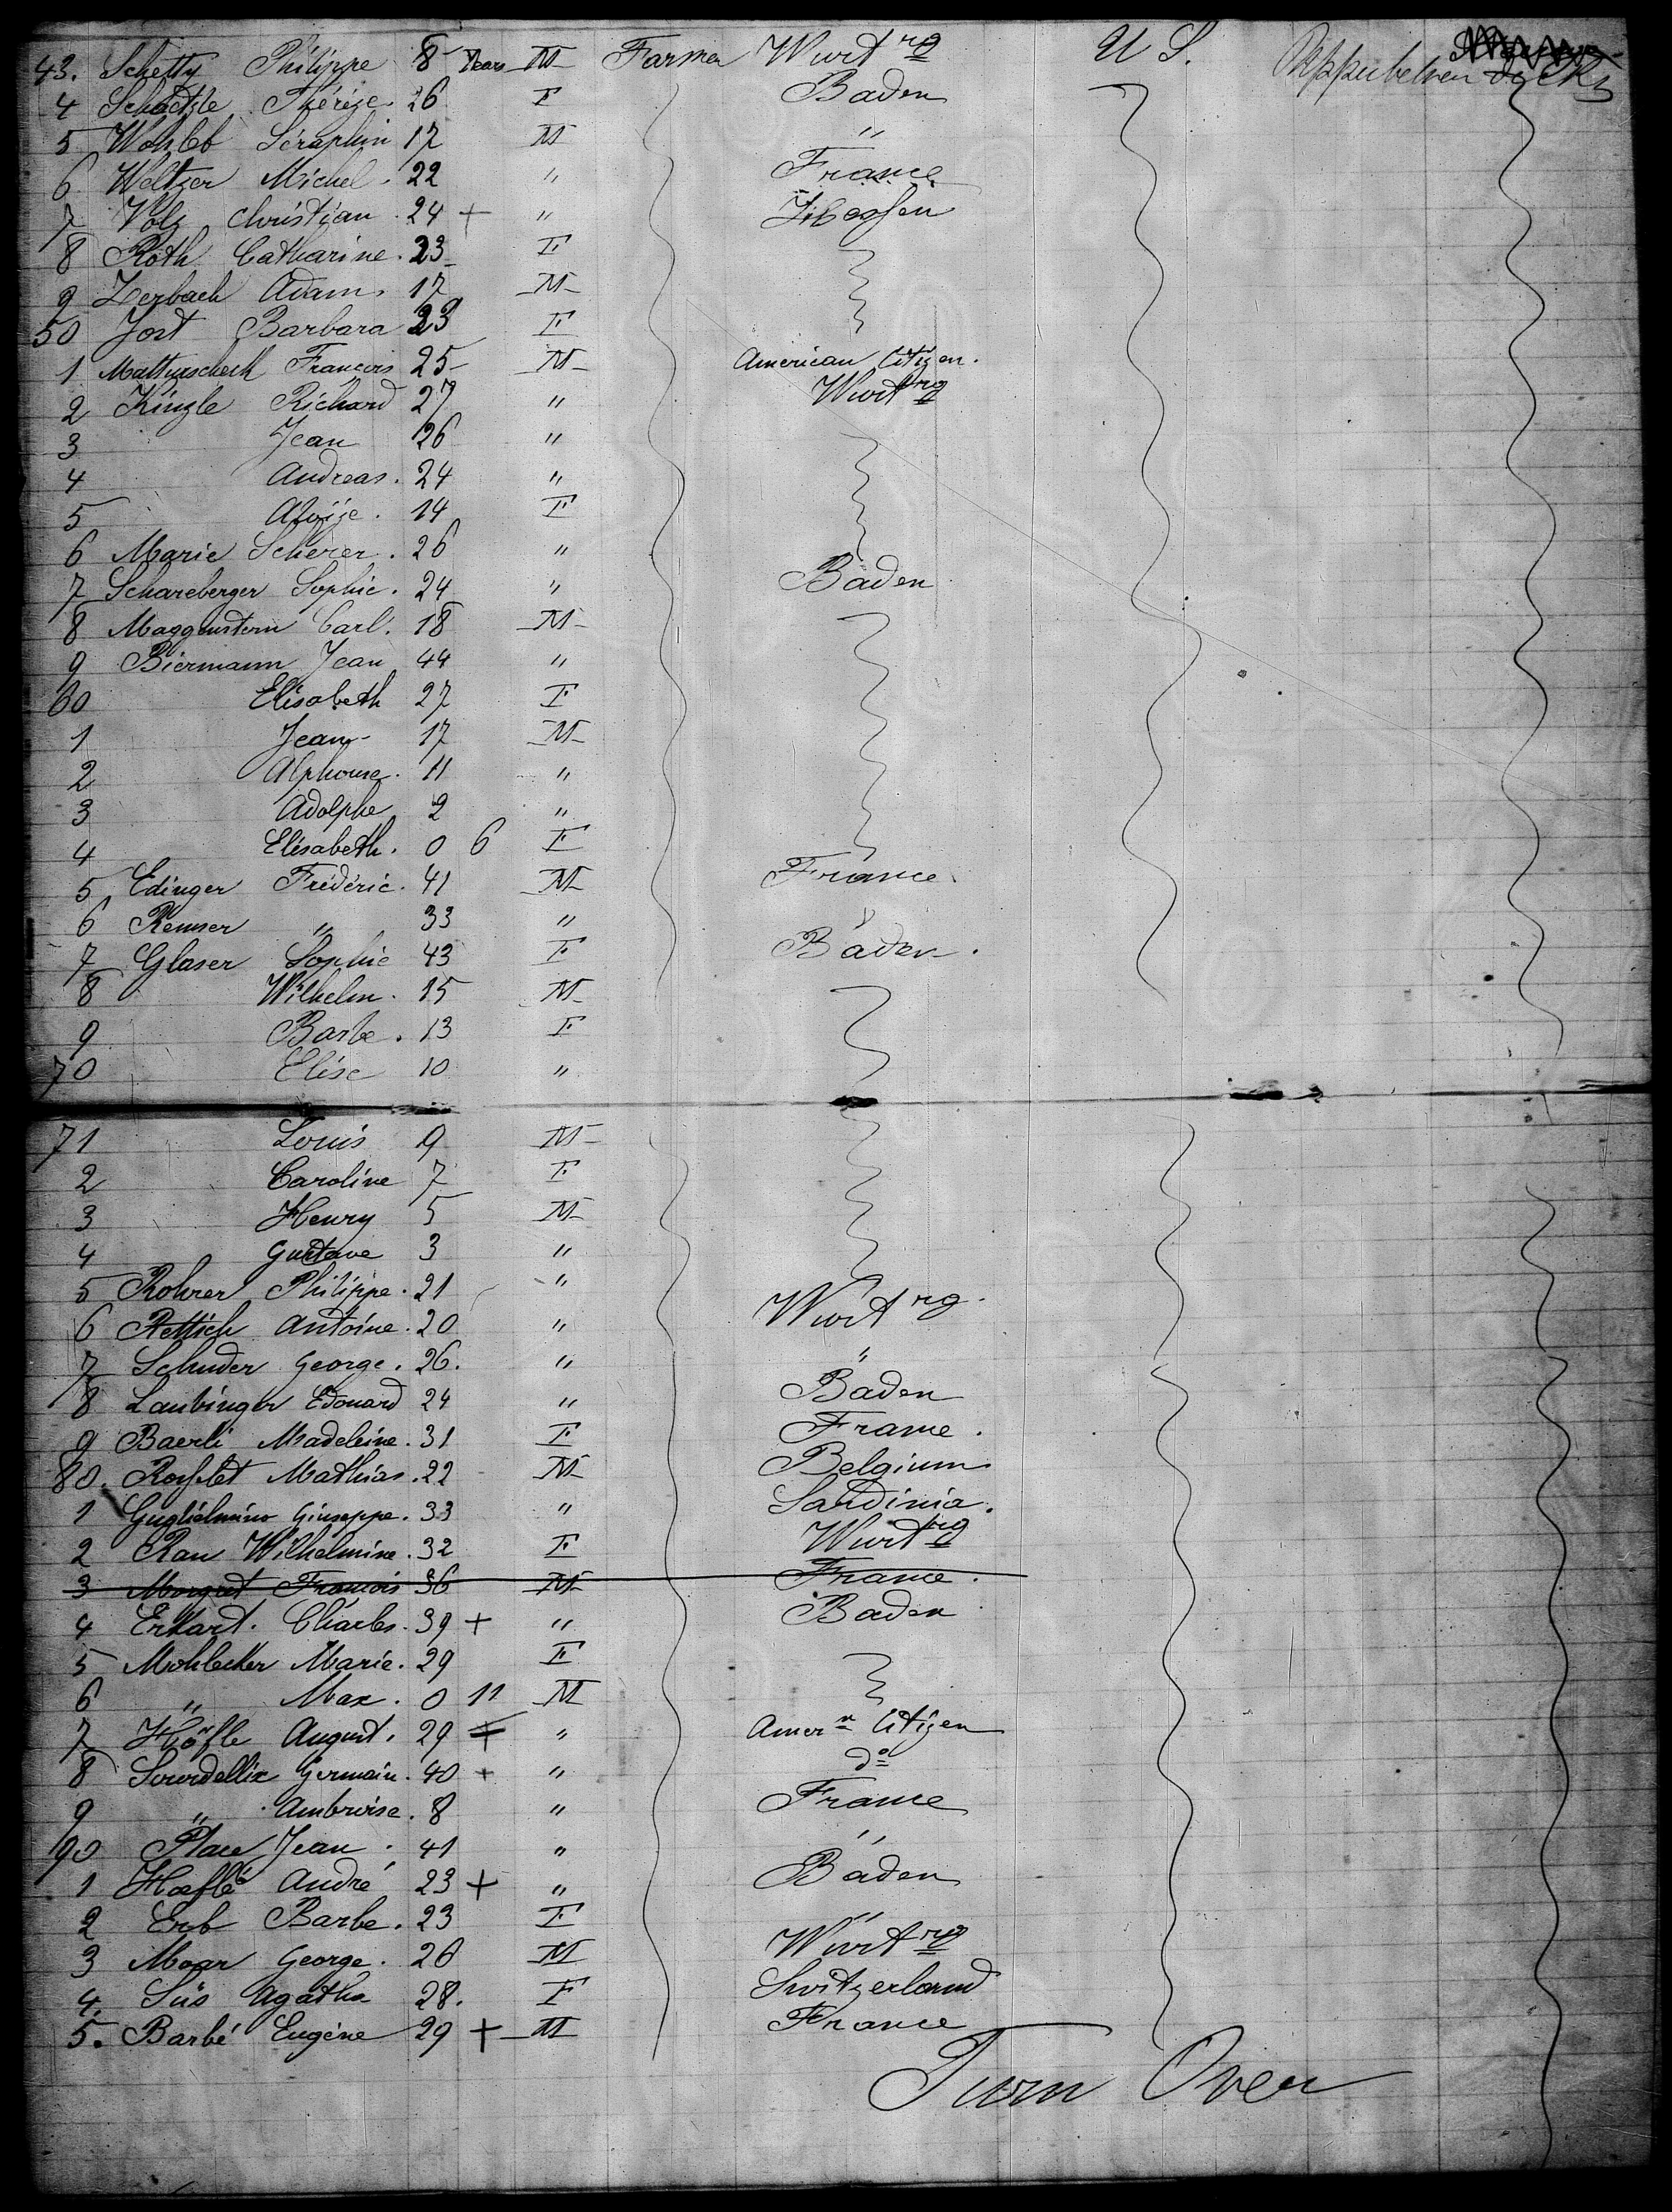 43. Schetty Philippe 8 Years M Farmer Wurtrg U S. Upper between decks
4 Schaetzle Thérèze 26 F Baden
5 Wohleb Séraphin 17 M "
6 Weltzer Michel. 22 " France
7 Volz Christian. 24 + "
8 Roth Catharine. 23 F
9 Zerbach Adam. 17 M
50 Jost Barbara 23 F
1 François 25 M American Citizen.
2 Kinzle Richard 27 " Wurtrg
3 Jean 26 "
4 Andreas. 24 "
5 14 F
6 Marie Scherer. 26 "
7 Schareberger Sophie. 24 " Baden
8 Carl. 18 M
9 Biermann Jean 44 "
60 Elisabeth 27 F
1 Jean 17 M
2 Alphonse. 11 "
3 Adolphe 2 "
4 Elisabeth. 0 6 F
5 Edinger Frédéric. 41 M France.
6 Renner " 33 " "
7 Glaser Sophie 43 F Baden.
8 Wilhelm. 15 M
9 Barbe. 13 F
70 Elise 10 "
71 Louis 9 M
2 Caroline 7 F
3 Henry 5 M
4 Gustave 3 "
5 Rohrer Philippe. 21 "
6 Rettich Antoine. 20 " Wurtrg.
7 Schuder George. 26. " "
8 Laubinger Edouard 24 " Baden
9 Baerli Madeleine. 31 F France.
80. Mathias. 22 M Belgium
1 Guglielmino Giuseppe. 33 " Sardinia.
2 Rau Wilhelmine. 32 F Wurtrg
3 François 36 M France.
4 Erkart. Charles. 39 + " Baden
5 Mohlecker Marie. 29 F
6 " Max. 0 11 M
7 Höfle August. 29 + " Amern Citizen
8 Germain. 40 + " do
9 " Ambroise. 8 " France
90 Place Jean. 41 " "
1 Haeflé André 23 + " Baden
2 Erb Barbe. 23 F "
3 Maar George. 26 M Würtrg
4. Süs Agatha 28. F Switzerland
5. Barbé Eugène 29 + M France
Turn Over